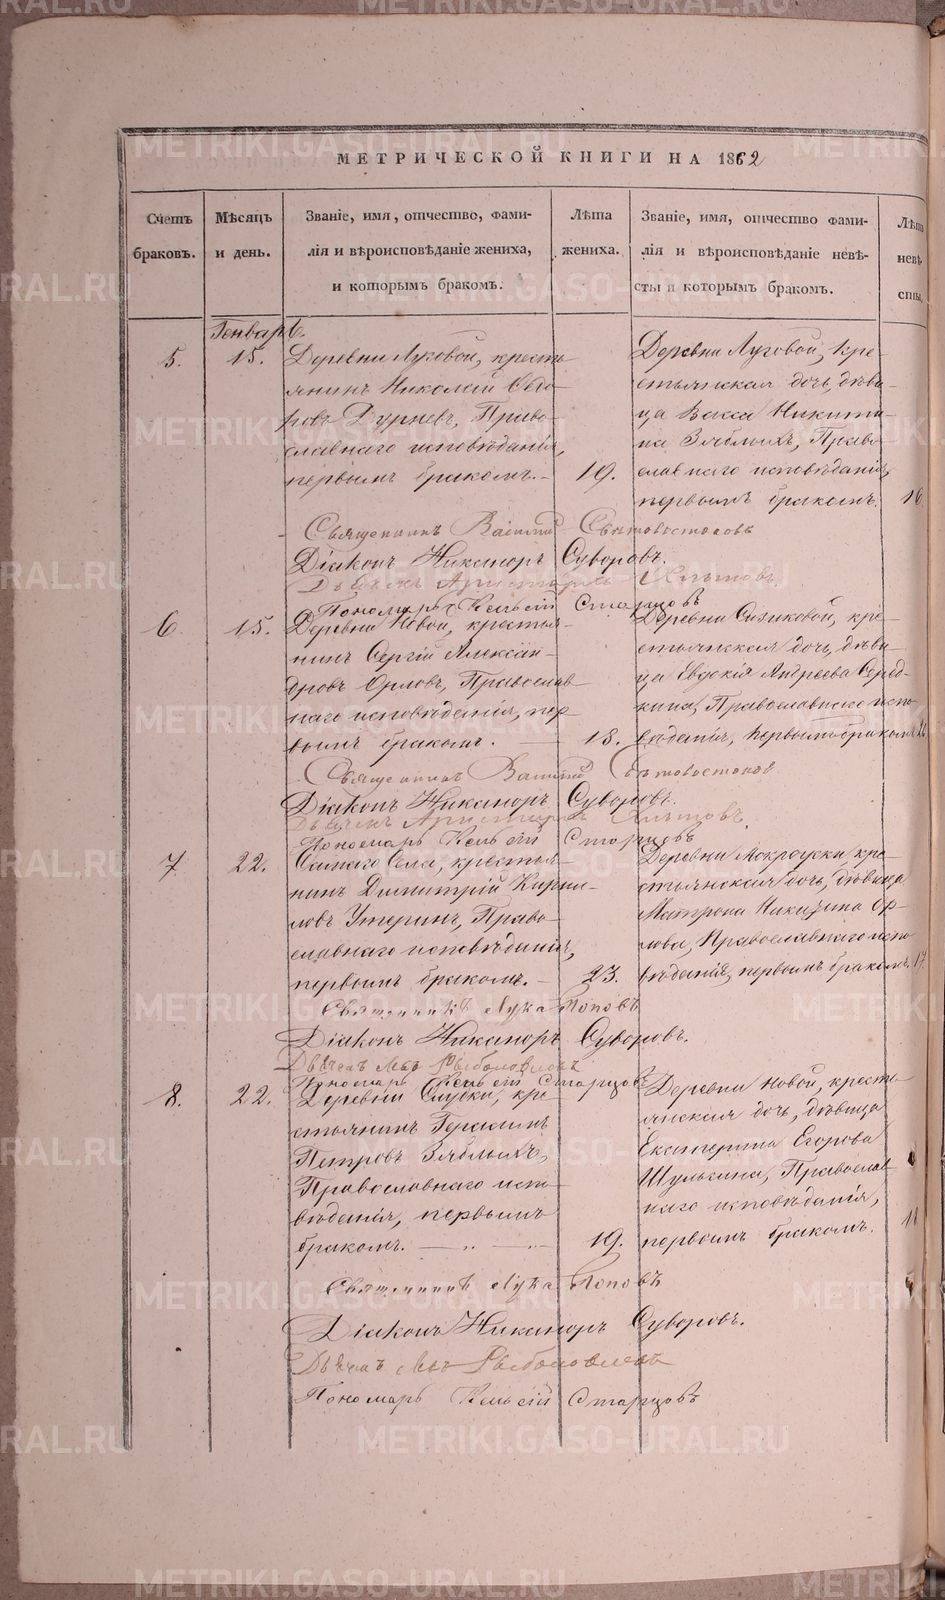 МЕТРИЧЕСКОЙ КНИГИ НА 1862
Счетъ браковъ.
Мѣсяцъ и день.
Званіе, имя, отчество, фами-
лія и вѣроисповѣданіе жениха,
и которымъ бракомъ.
Лѣта жениха.
Званіе, имя, отчество фами-
лія и вѣроисповѣданіе невѣ-
сты и которымъ бракомъ.
Лѣта
невѣ
сты,
Генварь.
5.
15.
Деревни Луговой, кресть
янинъ Николай Ѳедо-
ровъ Дурневъ, Право-
славнаго исповѣданія,
первымъ бракомъ.
19.
Деревни Луговой, кре-
стьянская дочь, дѣви-
ца Васса Никити-
на Зяблыхъ, Право
славнаго исповѣданія,
первымъ бракомъ.
16
Священникъ Василій Свѣтовостоковъ
Діаконъ Никаноръ Суворовъ.
Дьячекъ Аристархъ
Пономарь Старцовъ
6
15.
Деревни Новой, крестья-
нинъ Сергій Алексан-
дровъ Орловъ, Православ
наго исповѣданія, пер
вымъ бракомъ.
18.
Деревни Сизиковой, кре-
стьянская дочь, дѣви-
ца Евдокія Андреева Серед-
кина, Православнаго испо
вѣданія, первымъ бракомъ
Священникъ Василій Свѣтовостоковъ
Діаконъ Никаноръ Суворовъ.
Дьячекъ Аристархъ
Пономарь Старцовъ
7
22.
Самаго Села, крестья-
нинъ Димитрій Кирил-
ловъ Утеринъ, Право-
славнаго исповѣданія,
первымъ бракомъ.
23.
Деревни Мокроуски, кре-
стьянская дочь, дѣвица
Матрона Никитина Ор-
лова, Православнаго испо
вѣданія, первымъ бракомъ.
17.
Священникъ Лука Поповъ
Діаконъ Никаноръ Суворовъ.
Дьячекъ Рыболовлевъ
Пономарь Старцовъ
8.
22.
Деревни кре-
стьянинъ Герасимъ
Петровъ Зяблыхъ,
Православнаго испо-
вѣданія, первымъ
бракомъ.
19.
Деревни Новой, кресть-
янская дочь, дѣвица
Екатерина Егорова
Шулькина, Православ
наго исповѣданія,
первымъ бракомъ.
Священникъ Лука Поповъ
Діаконъ Никаноръ Суворовъ.
Дьячекъ Рыболовлевъ
Пономарь Старцовъ
METRIKI.GASO-URAL.RU